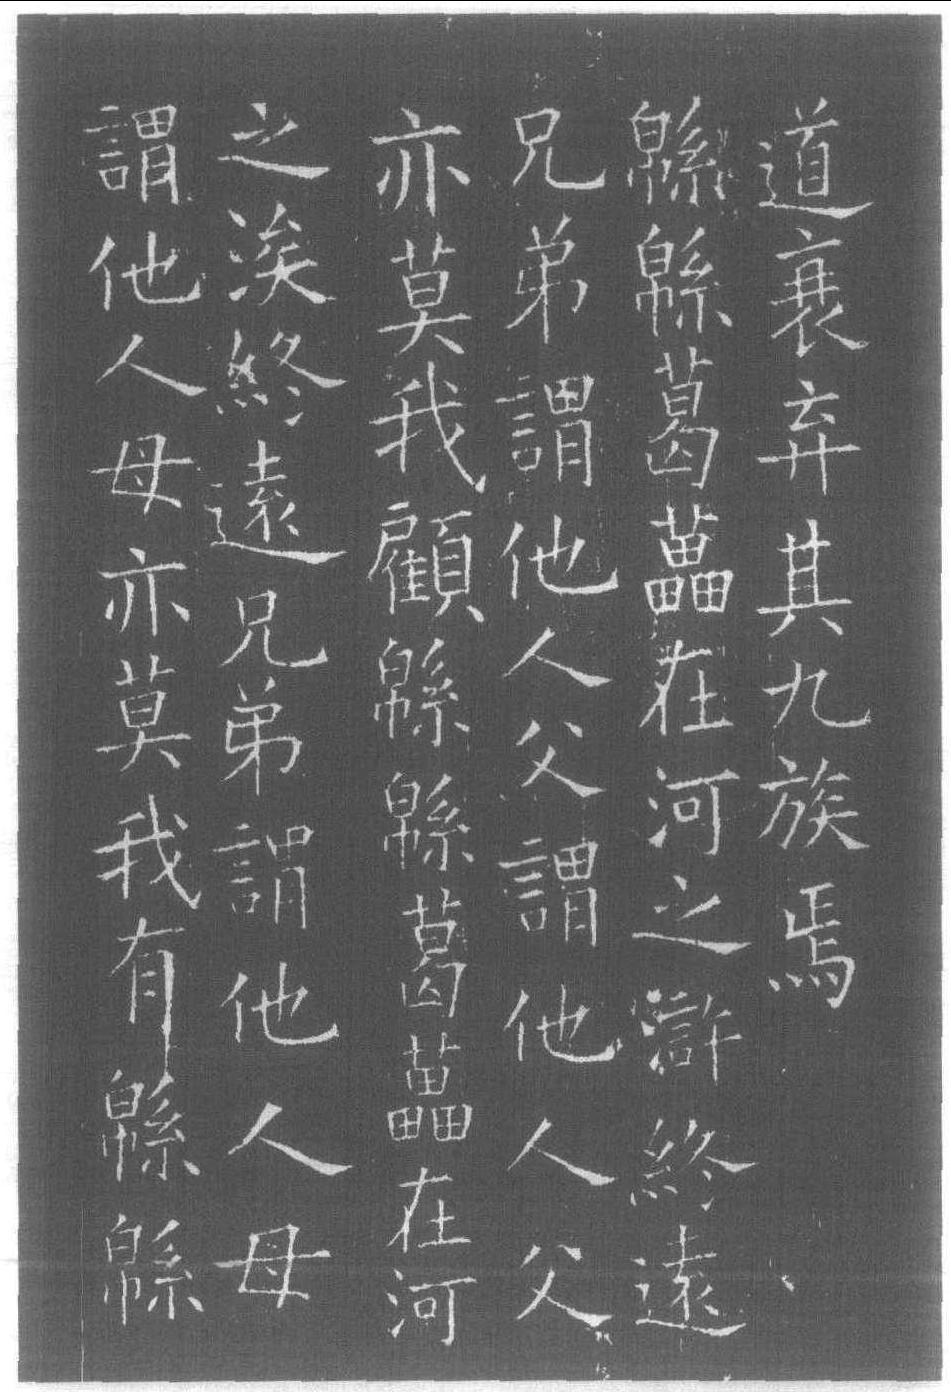 道衰弃其九族焉
緜緜葛藟在河之滸終遠
兄弟謂他人父謂他人父
亦莫我顧緜緜葛藟在河
之涘終遠兄弟謂他人母
謂他人母亦莫我有緜緜